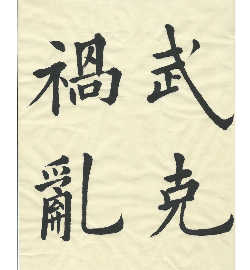 武克
禍亂